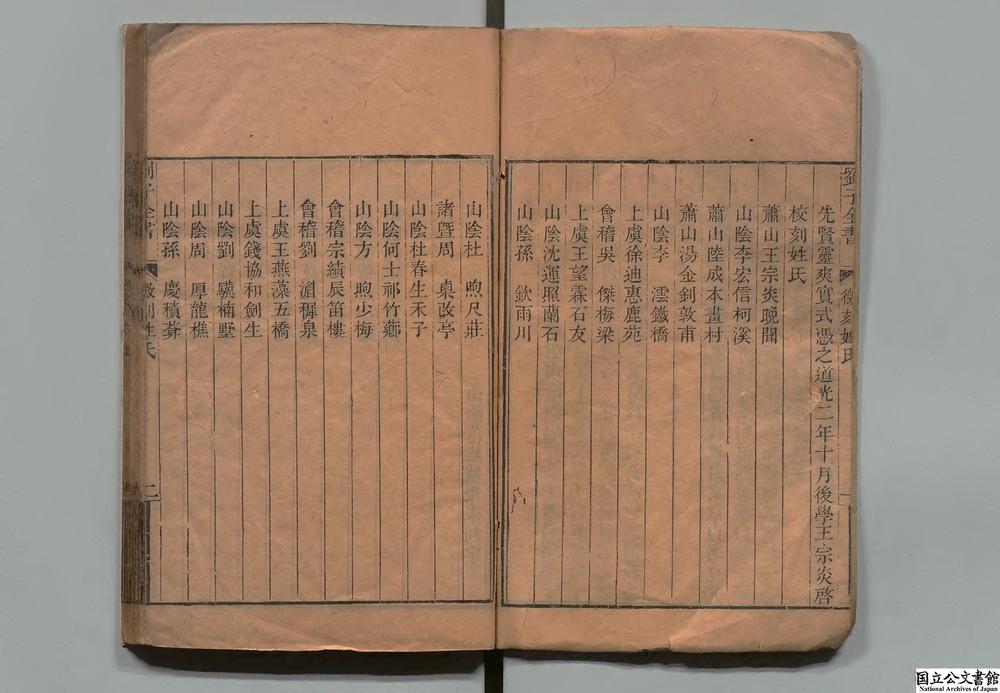 劉子全書
徵刻姓氏
先賢靈爽實式憑之道光二年十月後學王宗炎啓
校刻姓氏
蕭山王宗炎晚聞
山陰李宏信柯溪
蕭山陸成本畫村
蕭山湯金釗敦甫
山陰李 澐鐵橋
上虞徐迪惠鹿苑
會稽吳 傑梅梁
上虞王望霖石友
山陰沈運照蘭石
山陰孫 欽雨川
山陰杜 煦尺莊
諸暨周 棨改亭
山陰杜春生禾子
山陰何士祁竹薌
山陰方 煦少梅
會稽宗績辰笛樓
會稽劉 湄穉泉
上虞王燕藻五橋
上虞錢協和劍生
山陰劉 驥楠墅
山陰周 厚龍樵
山陰孫 慶積葊
劉子全書
徵刻姓氏
二
国立公文書館
National Archives of Japan